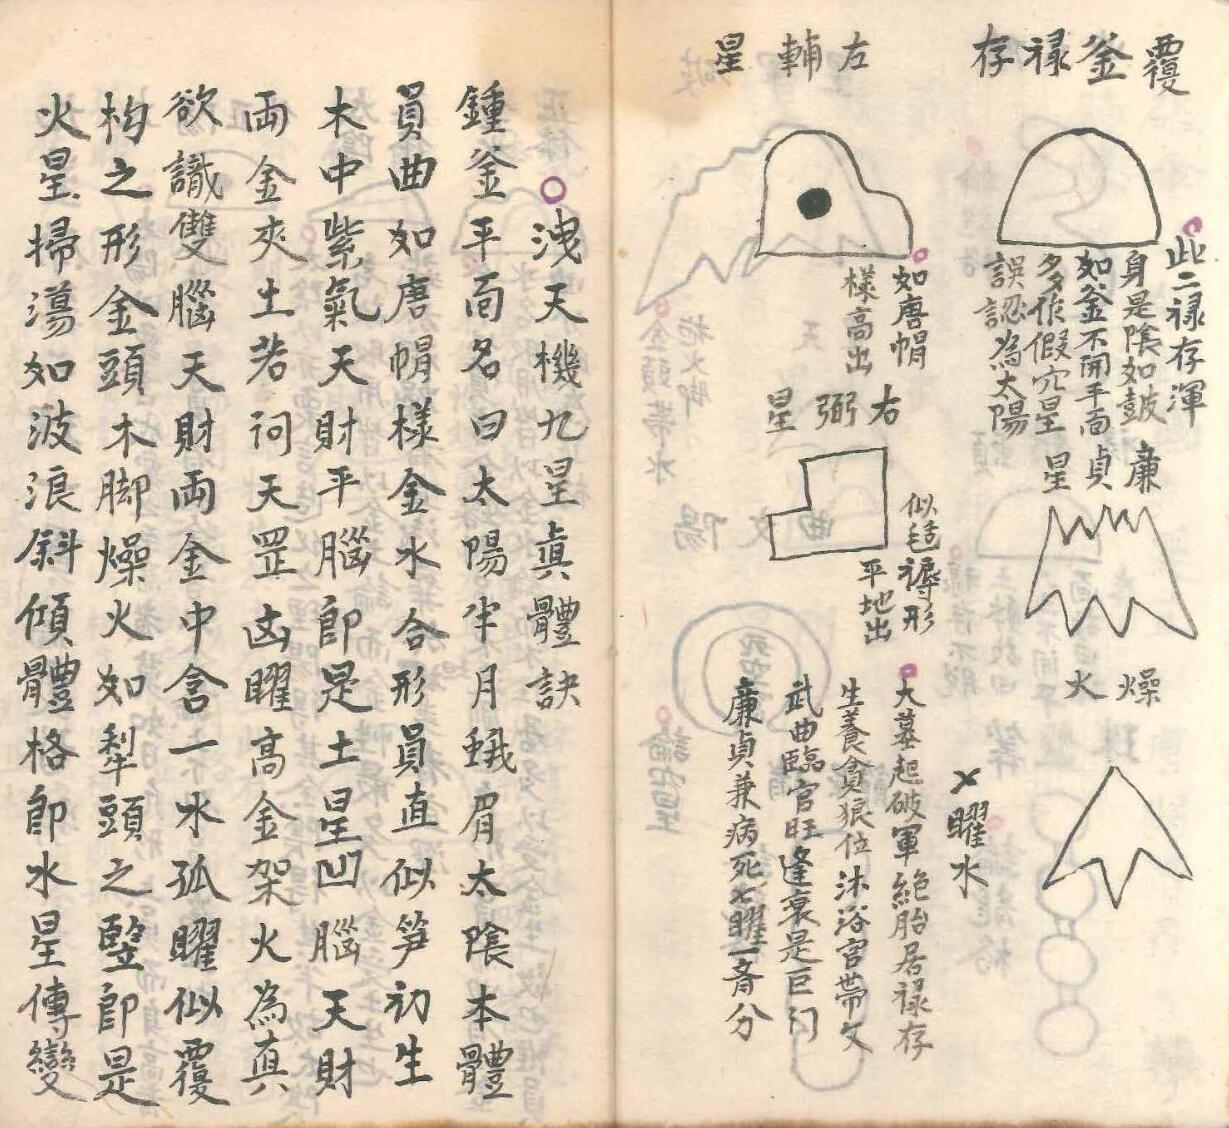 覆釜祿存
此二祿存渾
身是陰如皷
如釜不開平面
多作假穴星
誤認為太陽
廉貞星
燥火
曜水
左輔星
如唐帽
樣高出
右弼星
似毡褥形
平地出
大墓起破軍絕胎居祿存
生養貪狼位沐浴官帶文
武曲臨官旺逢衰是巨门
廉貞兼病死七曜一斉分
洩天機九星真體訣
鍾釜平面名曰太陽半月蛾眉太陰本體
員曲如唐帽樣金水合形員直似笋初生
木中紫氣天財平腦即是土星凹腦天財
両金夾土若詞天罡凶曜高金架火為真
欲識雙腦天財両金中含一水孤曜似覆
杓之形金頭木脚燥火如犁頭之竪即是
火星掃蕩如波浪斜傾體格即水星傳變